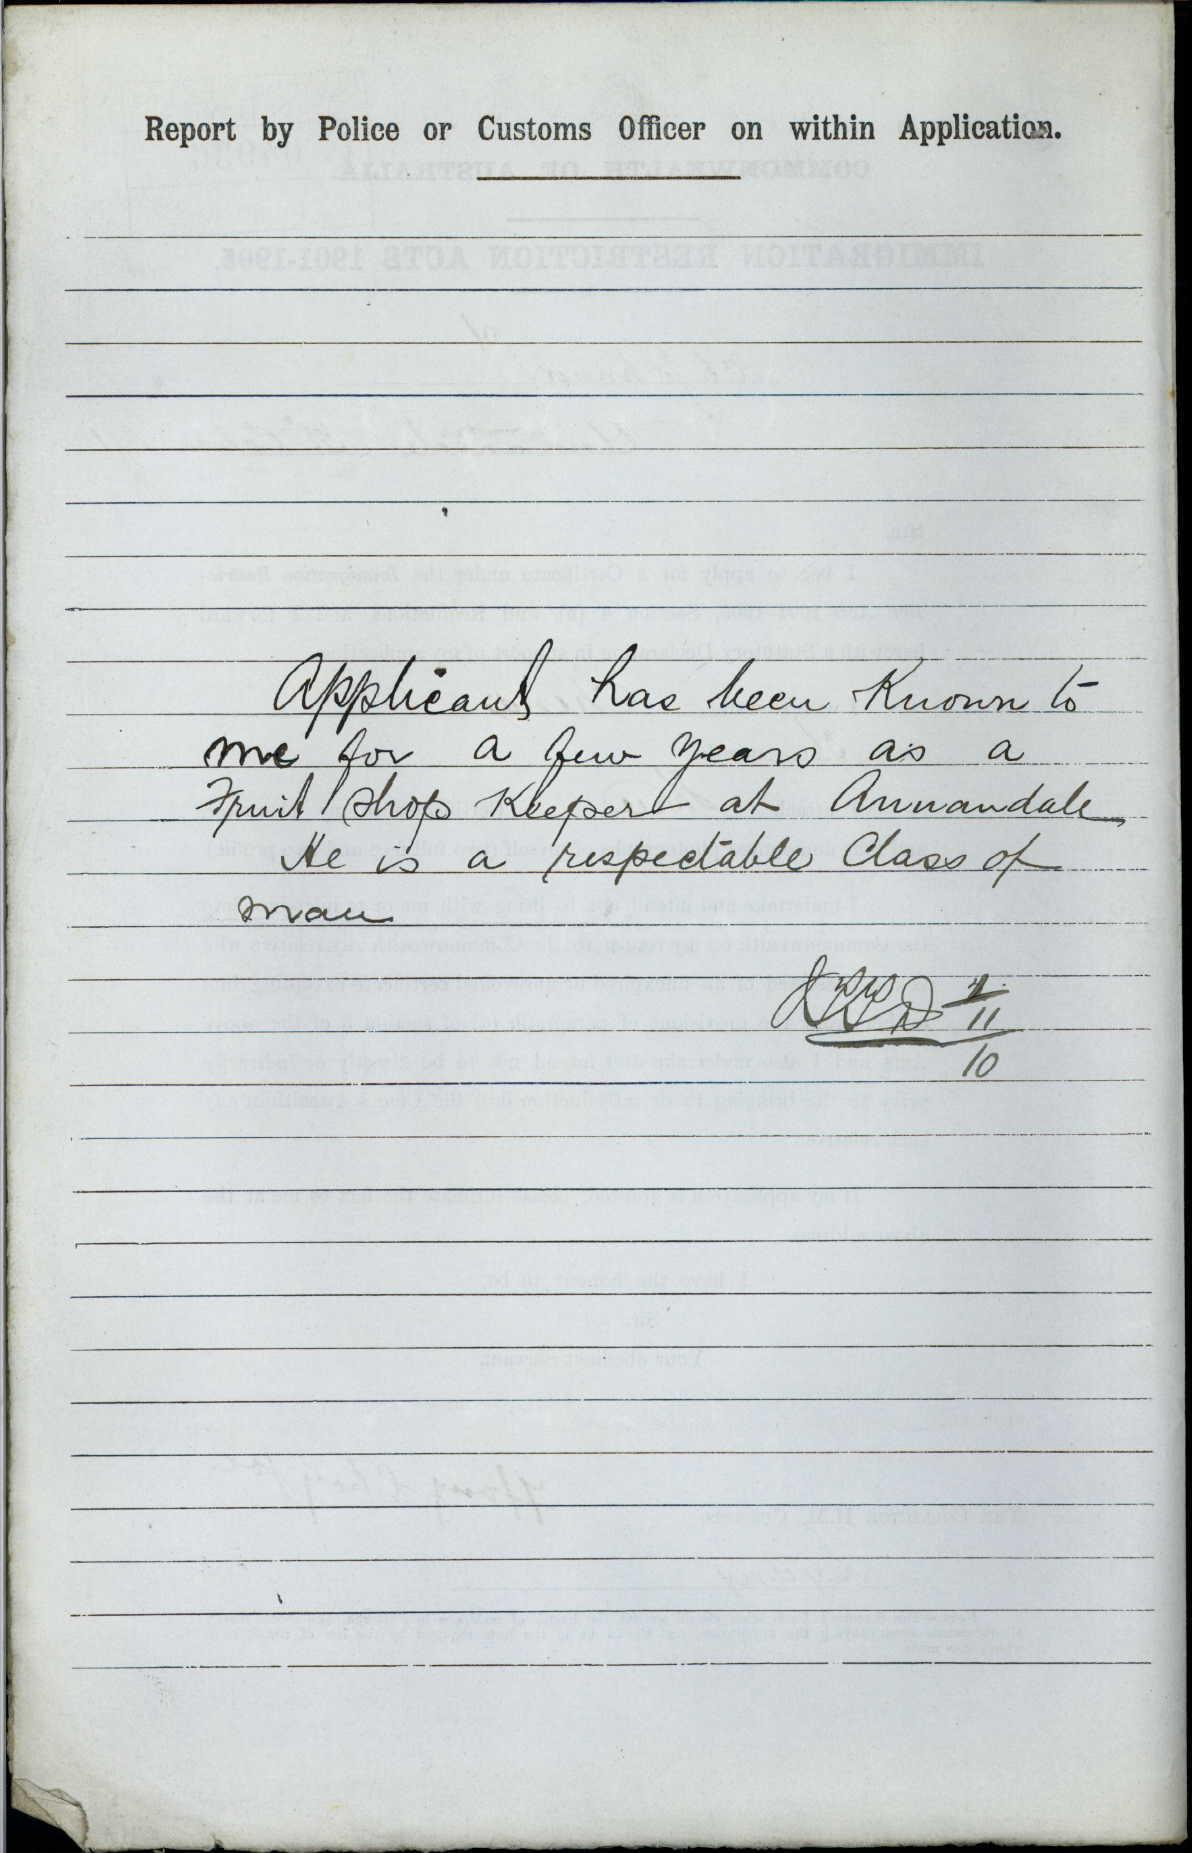 Report by Police or Customs Officer on within Application.
Applicant has been Known to
me for a few years as a
Fruit shop Keeper at Annandale
He is a respectable Class of
man
4
11
10